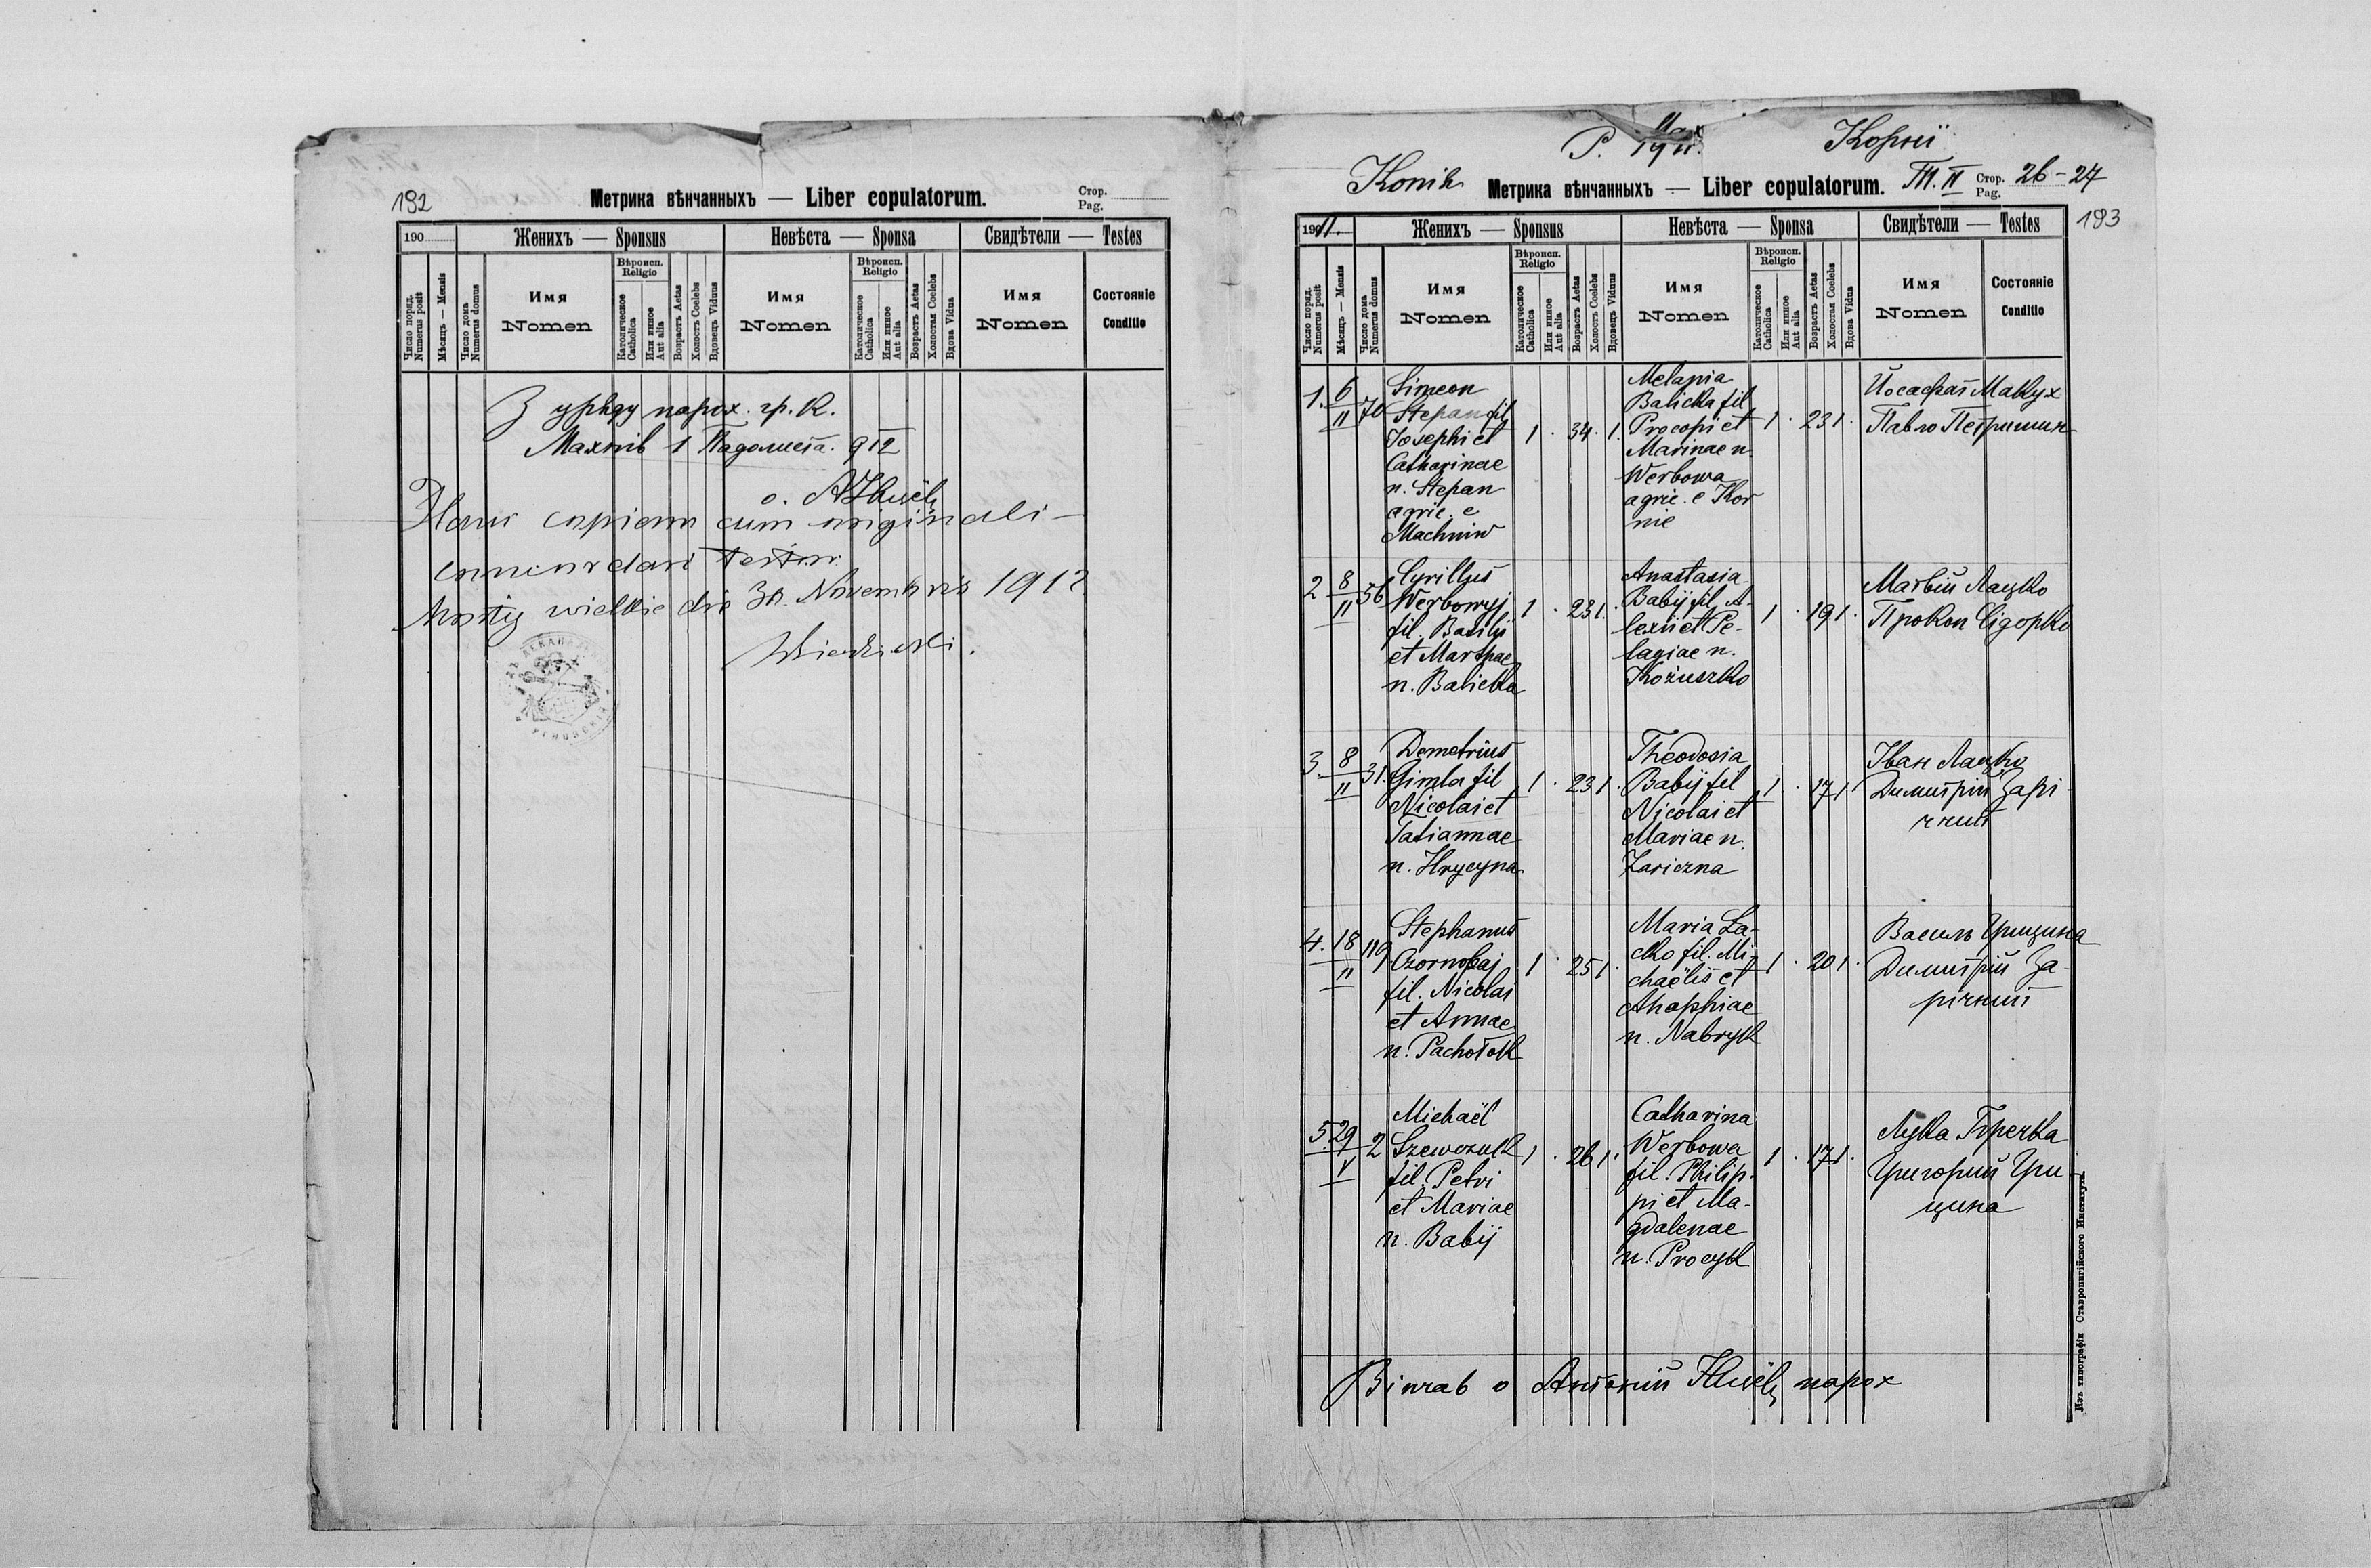 192
Метрика вѣнчанныхъ — Liber copulatorum.
Стор.
Pag.
190
Женихъ — Sponsus
Невѣста — Sponsa
Свидѣтели — Testes
Число поряд.
Numerus posit
Мѣсяцъ — Mensis
Число дома
Numerus domus
Имя
Nomen
Вѣроисп.
Religio
Католическое
Catholica
Или инное
Aut alia
Возрастъ Aetas
Холостъ Coelebs
Вдовецъ Viduus
Имя
Nomen
Вѣроисп.
Religio
Католическое
Catholica
Или инное
Aut alia
Возрастъ Aetas
Холостая Coelebs
Вдова Vidua
Имя
Nomen
Состояніе
Conditio
З уряду парох. гр. к.
Махнів 1 Падолиста. 912
о.
Hanc copiam cum originali
concordari testor
Mosty wielkie die 30. Novembris 1912
P.
Корні
Konik
Метрика вѣнчанныхъ — Liber copulatorum.
Т. II
Стор.
Pag.
26-27
193
1911.
Женихъ — Sponsus
Невѣста — Sponsa
Свидѣтели — Testes
Число поряд.
Numerus posit
Мѣсяцъ — Mensis
Число дома
Numerus domus
Имя
Nomen
Вѣроисп.
Religio
Католическое
Catholica
Или инное
Aut alia
Возрастъ Aetas
Холостъ Coelebs
Вдовецъ Viduus
Имя
Nomen
Вѣроисп.
Religio
Католическое
Catholica
Или инное
Aut alia
Возрастъ Aetas
Холостая Coelebs
Вдова Vidua
Имя
Nomen
Состояніе
Conditio
1. 6/II 70
Simeon
Stepan fil
Josephi et
Catharinae
n. Stepan
agric. e
Machniw
1 . 34. 1.
Melania
Balicka fil
Procopi et
Marinae n.
Werbowa
agric. e Kor
nie
1 . 23 1.
Йосафат Макух
Павло Петришин
2 8/II 56
Cyrillus
Werbowyj
fil. Basilji
et Marthae
n. Balicka
1 . 23 1.
Anastasia
Babij fil A-
lexii et Pe-
lagiae n.
Kożuszko
1 . 19 1.
Матвій Лацко
Прокоп Сідорко
3. 8/II 31.
Demetrius
Gimla fil
Nicolai et
Tatiannae
n. Hrycyna
1 . 23 1.
Theodosia
Babij fil
Nicolai et
Mariae n.
Zariczna
1 . 17 1
Іван Лацко
Димитрій Зарі-
чний
4. 18/II 119
Stephanus
Czornobaj
fil. Nicolai
et Annae
n. Pachołok
1 . 25 1.
Maria La-
cko fil. Mi-
chaëlis et
Ahaphiae
n. Nabryk
1 . 20 1.
Василь Грицина
Димитрій За-
річний
5. 29/V 2
Michaël
Szewczuk
fil. Petri
et Mariae
n. Babij
1 . 26 1.
Catharina
Werbowa
fil. Philip-
pi et Ma-
gdalenae
n. Procyk
1 . 17 1.
Лука Гречка
Григорий Гри-
цина
Вінчав о Антоній парох
Изъ типографіи Ставропигійского Института.